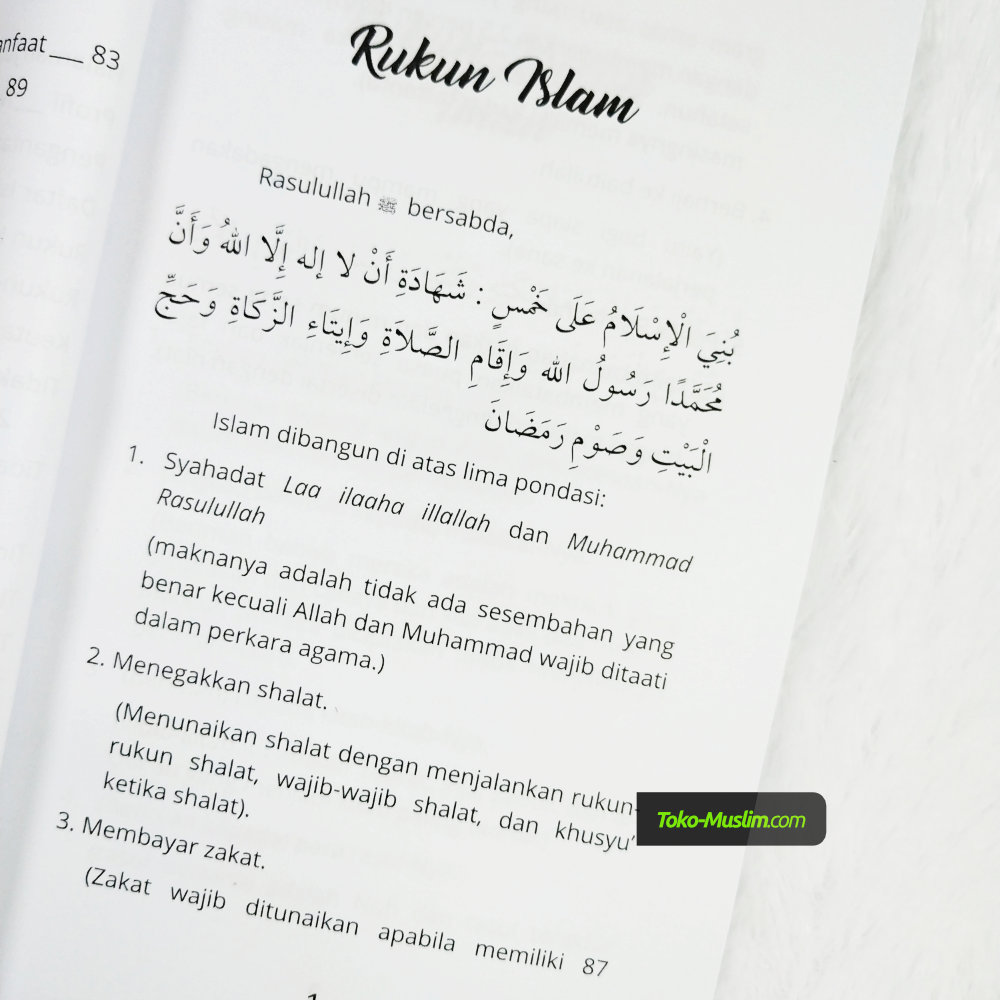 anfaat ___ 83
89
Rukun Islam
Rasulullah ﷺ bersabda,
بُنِيَ الْإِسْلَامُ عَلَى خَمْسٍ : شَهَادَةِ أَنْ لا إله إِلَّا اللهُ وَأَنَّ
مُحَمَّدًا رَسُولُ الله وَإِقَامِ الصَّلاَةِ وَإِيتَاءِ الزَّكَاةِ وَحَجِّ
الْبَيْتِ وَصَوْمِ رَمَضَانَ
Islam dibangun di atas lima pondasi:
1. Syahadat Laa ilaaha illallah dan Muhammad
Rasulullah
(maknanya adalah tidak ada sesembahan yang
benar kecuali Allah dan Muhammad wajib ditaati
dalam perkara agama.)
2. Menegakkan shalat.
(Menunaikan shalat dengan menjalankan rukun-
rukun shalat, wajib-wajib shalat, dan khusyu'
ketika shalat).
3. Membayar zakat.
(Zakat wajib ditunaikan apabila memiliki 87
Toko-Muslim.com